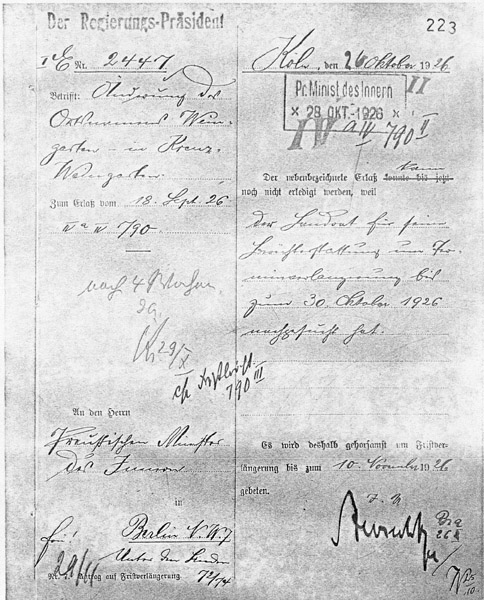 Der Regierungs-Präsident
223
Nr. 2447
Betrifft: Änderung des
Ortsnamens Wein-
garten – in Kreuz-
Weingarten.
Zum Erlaß vom 18. Sept. 26
IV a IV 790.
nach 4 Wochen
29/X
790 III
An den Herrn
Preußischen Minister
des Innern
in
Berlin N.W. 7
Unter den Linden
72/74
Nr. Antrag auf Fristverlängerung.
Köln, den 26 Oktober 1926
Pr. Minist des Innern
× 28. OKT. 1926 ×
II
IV a IV 790 II
Der nebenbezeichnete Erlaß konnte bis jetzt kann
noch nicht erledigt werden, weil
der Landrat für seine
Berichterstattung um Ter-
minverlängerung bis
zum 30. Oktober 1926
nachgesucht hat.
Es wird deshalb gehorsamst um Fristver-
längerung bis zum 10. November 1926
gebeten.